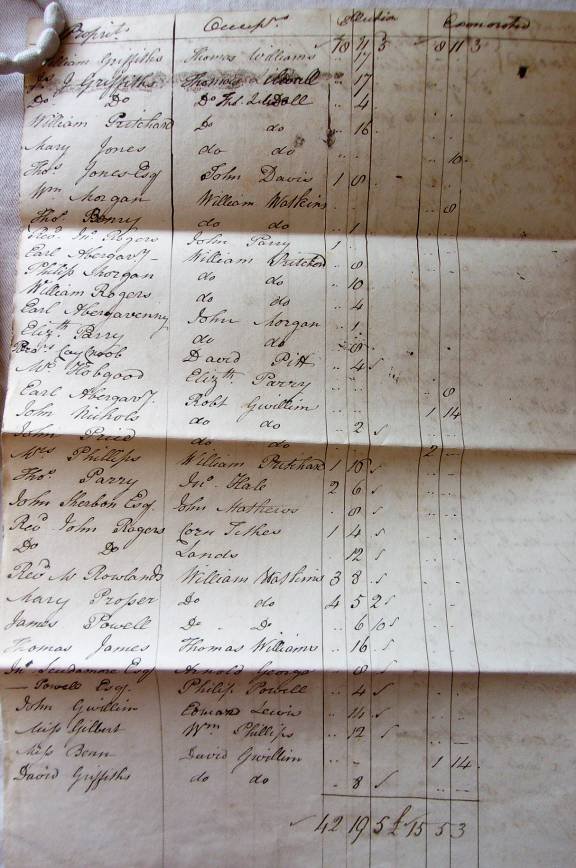 Propr.ts Occup.rs Exonerated
18 11 3 8 11 3
William Griffiths Thomas Williams .. 17
J. Griffiths Thomas .. 17
Do Do Do .. 4
William Pritchard Do do .. 16
Mary Jones do do .. .. 10
Thos. Jones Esq John Davis 1 8
Wm Morgan William Watkins .. .. 8
Thos. Henry do do .. 1
Revd. Jno. Rogers John Parry 1
Earl Abergavy William Pritchard .. 8
Philip Morgan do do .. 10
William Rogers do do .. 4
Earl Abergavenny John Morgan .. 1
Elizth Parry do do .. 8
David Pitt .. 4 s
Mr. Hobgood Elizth. Parry .. .. 8
Earl Abergavy. Robt Gwillim .. .. 1 14
John Nichols do do .. 2 s
John do do .. 2 ..
Mrs Phillips William Pritchard 1 16 s
Thos. Parry Jno. Hale 2 6 s
John Sherbon Esq. John Mathews .. 8 s
Revd. John Rogers Corn Tithes 1 4 s
Do Do Lands .. 12 s
Revd. Mr Rowlands William Watkins 3 8 s
Mary Proper Do do 4 5 2 s
James Powell Do Do .. 6 10 s
Thomas James Thomas Williams .. 16 s
Jno. Scudamore Esq Arnold George .. 8 s
— Powell Esq. Philip Powell .. 4 s
John Gwillim Edward Lewis .. 14 s
Miss Gilbert Wm. Phillips .. 12 s
Miss Benn David Gwillim .. .. 1 14
David Griffiths do do .. 8 s
42 19 5 £ 15 5 3